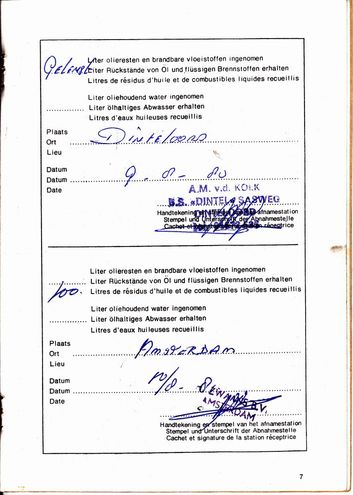 Liter olieresten en brandbare vloeistoffen ingenomen
Liter Rückstände von Öl und flüssigen Brennstoffen erhalten
Litres de résidus d'huile et de combustibles liquides recueillis
Liter oliehoudend water ingenomen
Liter ölhaltiges Abwasser erhalten
Litres d'eaux huileuses recueillis
Plaats
Ort Dinteloord
Lieu
Datum
Datum 9-8-80
Date
A.M. v.d. KOLK
B.S. «DINTEL» SASWEG
DINTELOORD
Handtekening en stempel van het afnamestation
Stempel und Unterschrift der Abnahmestelle
Cachet et signature de la station réceptrice
Liter olieresten en brandbare vloeistoffen ingenomen
Liter Rückstände von Öl und flüssigen Brennstoffen erhalten
100. Litres de résidus d'huile et de combustibles liquides recueillis
Liter oliehoudend water ingenomen
Liter ölhaltiges Abwasser erhalten
Litres d'eaux huileuses recueillis
Plaats
Ort AMSTERDAM
Lieu
Datum
Datum
Date
B.V.
AMSTERDAM
Handtekening en stempel van het afnamestation
Stempel und Unterschrift der Abnahmestelle
Cachet et signature de la station réceptrice
7